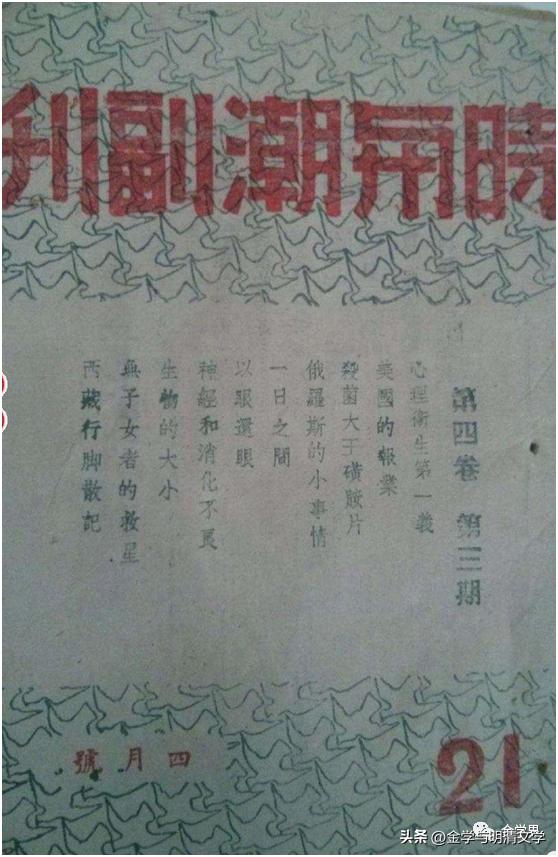 時與潮副刊
第四卷 第三期
心理衛生第一義
美國的報業
殺菌大王磺胺片
俄羅斯的小事情
一日之間
以眼還眼
神經和消化不良
生物的大小
無子女者的救星
西藏行脚散記
四月號
21
金学界
头条 @金学与明清文学